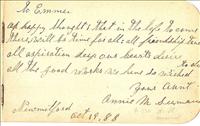 To Emmer
a happy thought; that in the life to come
there will be time for all; all friendship true
all aspiration deep our hearts desire
to do
all the good works we have so wished
Your Aunt.
Annie M. Seaman
New Milford
Oct 19. 88